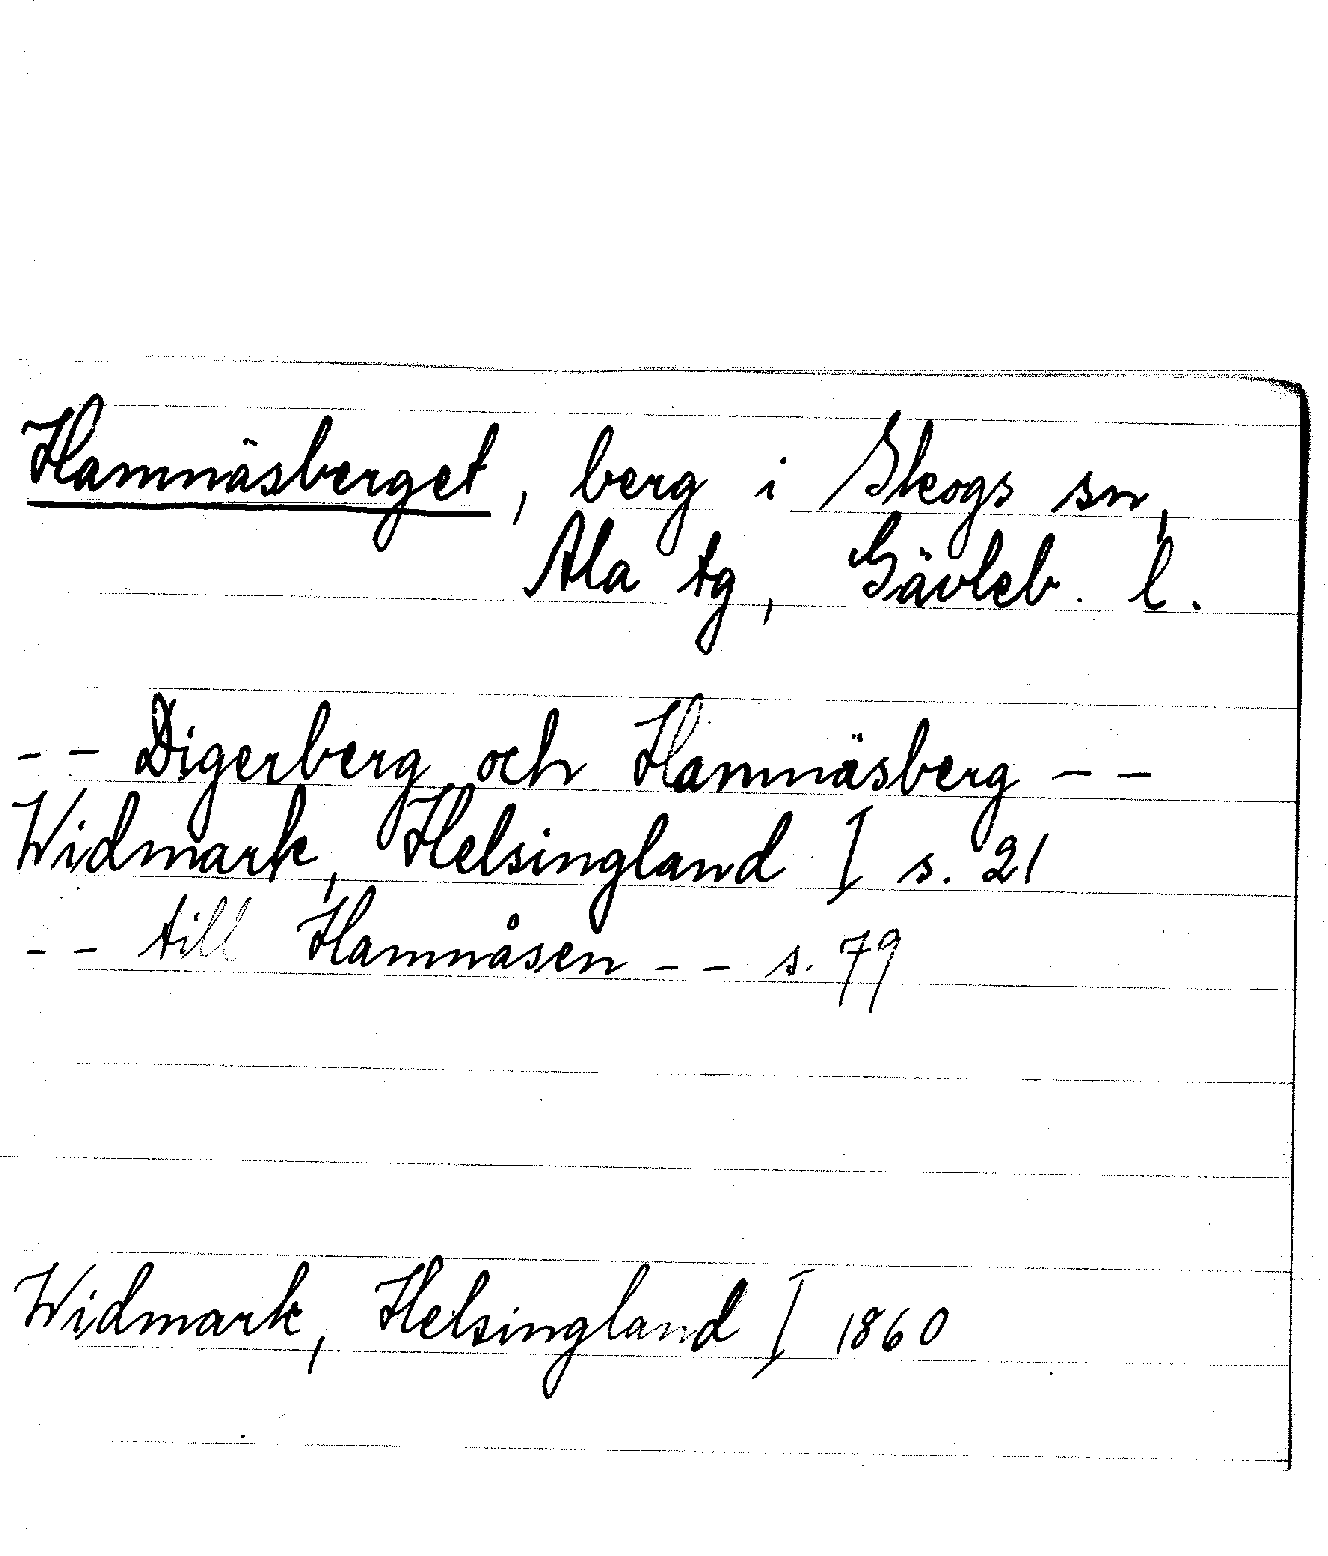 Hamnäsberget, berg i Skogs sn,
Ala tg, Gävleb. l.
-- Digerberg och Hamnäsberg --
Widmark, Helsingland I s. 21
-- till Hamnåsen -- s. 79
Widmark, Helsingland I 1860